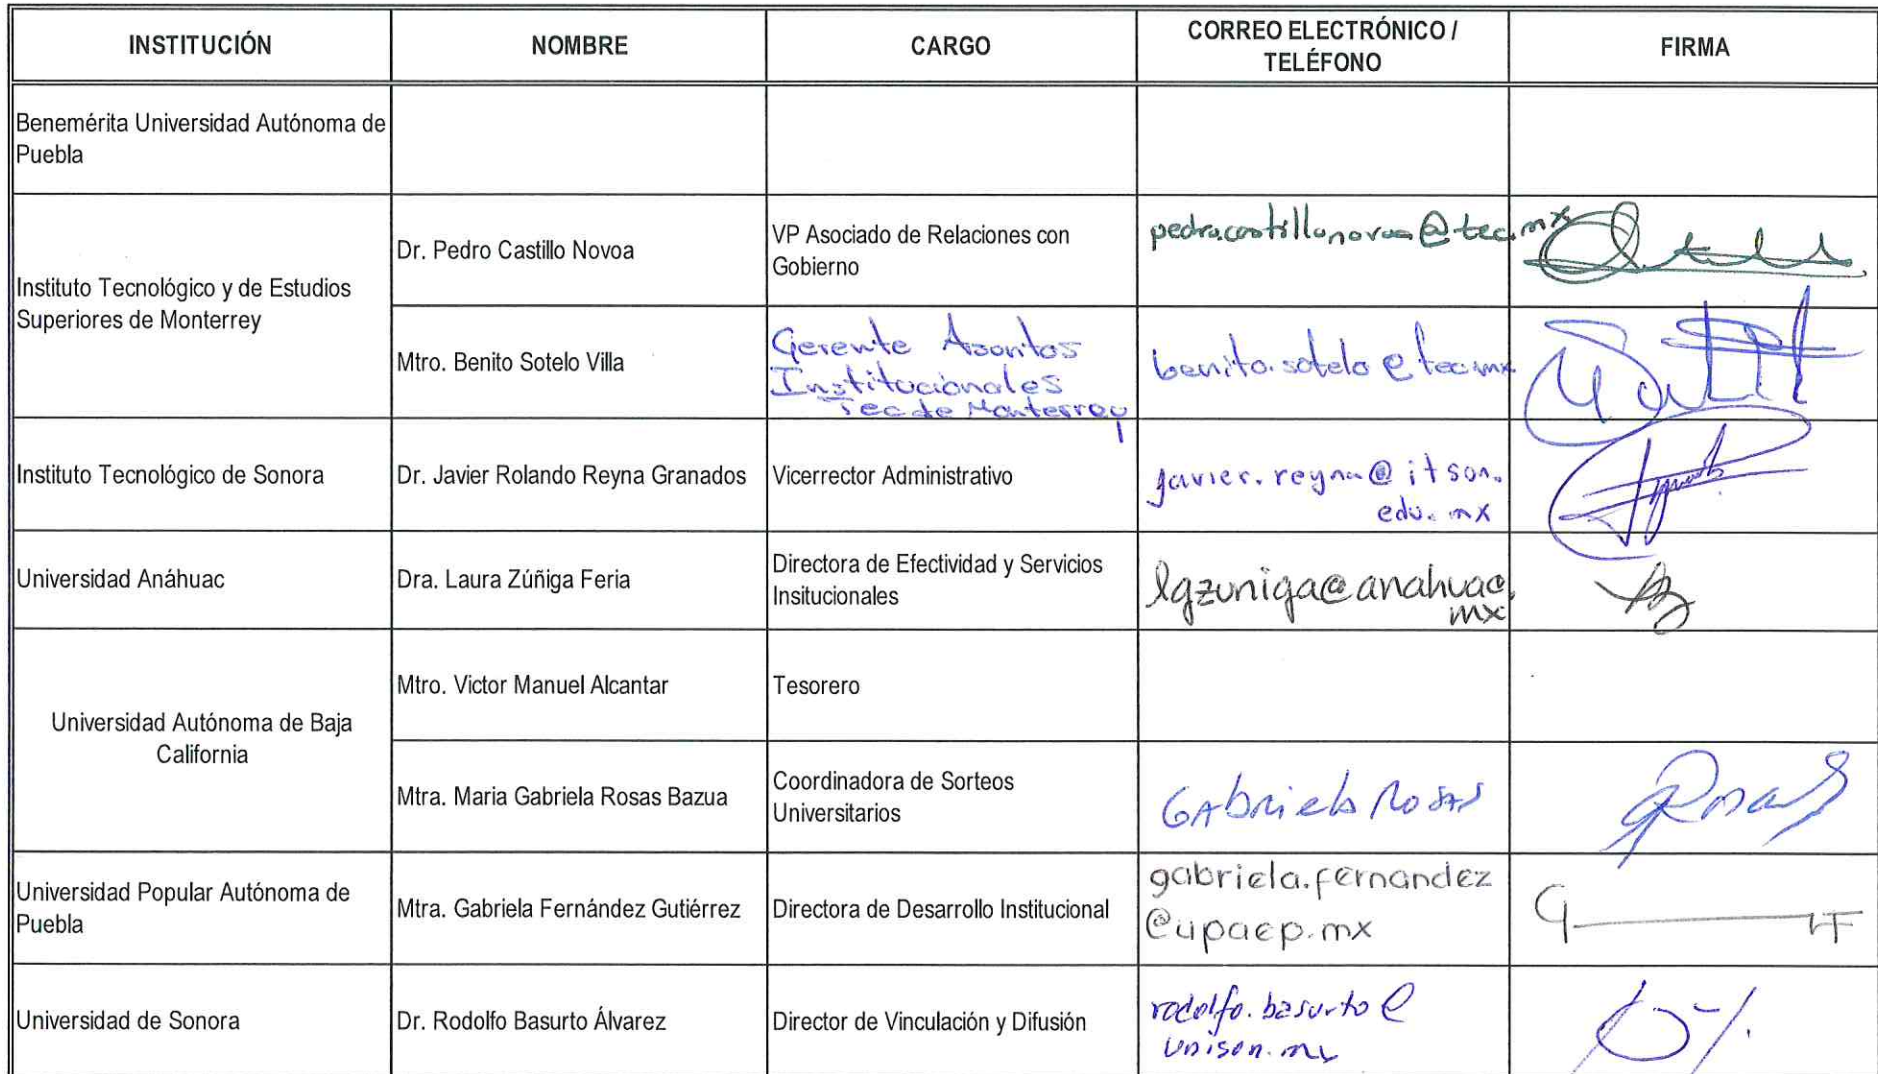 INSTITUCIÓN NOMBRE CARGO CORREO ELECTRÓNICO /
TELÉFONO FIRMA
Benemérita Universidad Autónoma de
Puebla
Instituto Tecnológico y de Estudios
Superiores de Monterrey
Dr. Pedro Castillo Novoa
VP Asociado de Relaciones con
Gobierno
pedro.castillonovoa@tec.mx
Mtro. Benito Sotelo Villa
Gerente Asontos
Institucionales
Tec de Monterrey
benito.sotelo@tec.mx
Instituto Tecnológico de Sonora
Dr. Javier Rolando Reyna Granados
Vicerrector Administrativo
javier.reyna@itson.
edu.mx
Universidad Anáhuac
Dra. Laura Zúñiga Feria
Directora de Efectividad y Servicios
Insitucionales
lgzuniga@anahuac.
mx
Universidad Autónoma de Baja
California
Mtro. Victor Manuel Alcantar
Tesorero
Mtra. Maria Gabriela Rosas Bazua
Coordinadora de Sorteos
Universitarios
GAbriela Rosas
Universidad Popular Autónoma de
Puebla
Mtra. Gabriela Fernández Gutiérrez
Directora de Desarrollo Institucional
gabriela.fernandez
@upaep.mx
Universidad de Sonora
Dr. Rodolfo Basurto Álvarez
Director de Vinculación y Difusión
rodolfo.basurto@
unison.mx